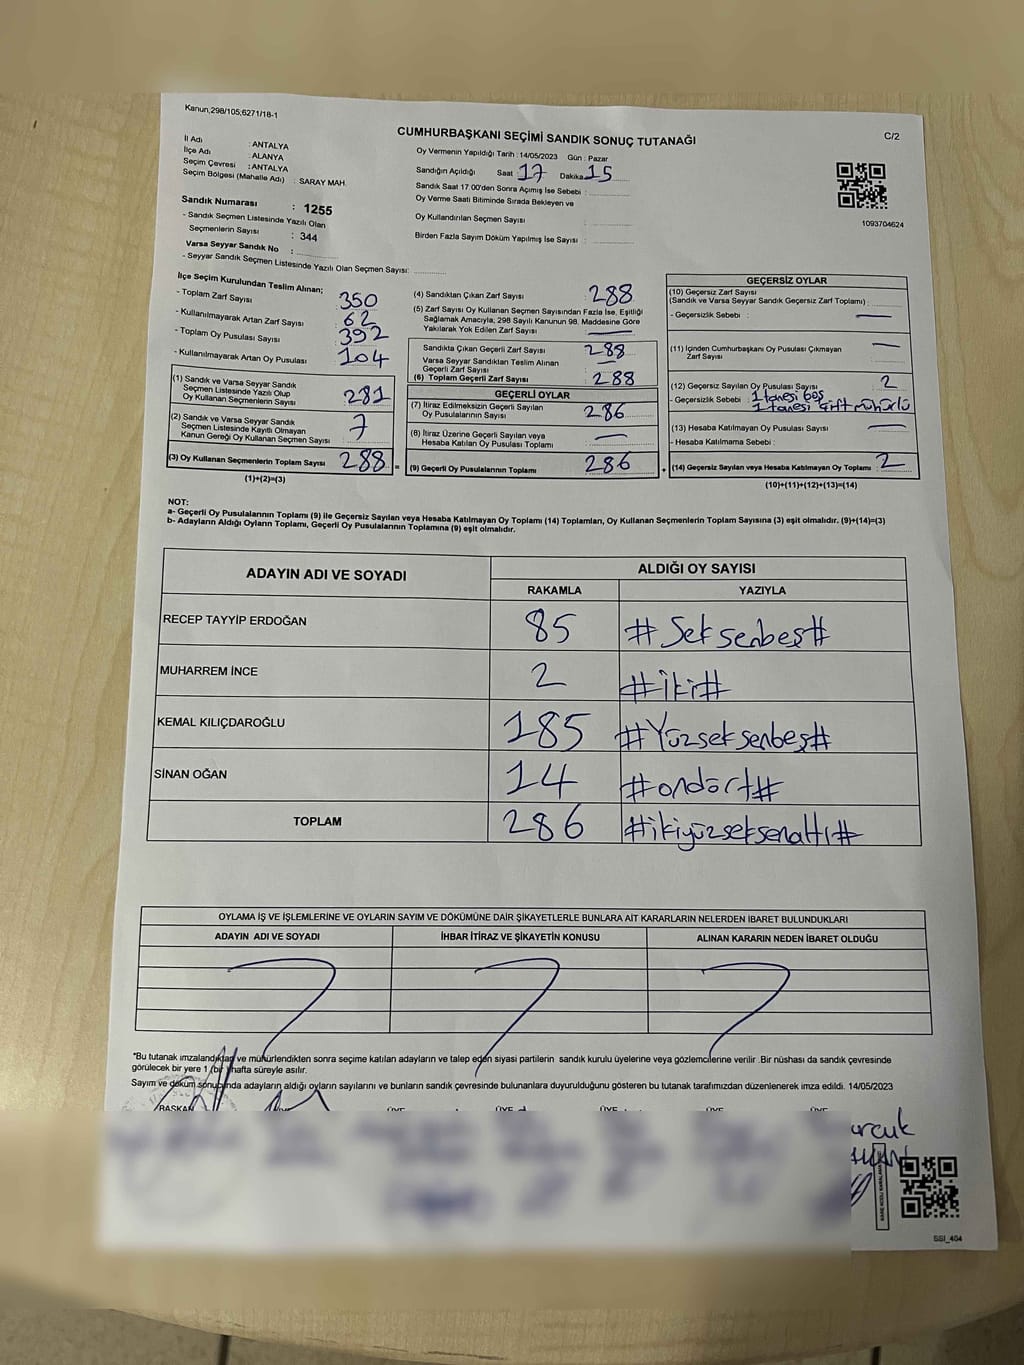 Kanun,298/105;6271/18-1
CUMHURBAŞKANI SEÇİMİ SANDIK SONUÇ TUTANAĞI
C/2
İl Adı : ANTALYA
İlçe Adı : ALANYA
Seçim Çevresi : ANTALYA
Seçim Bölgesi (Mahalle Adı) : SARAY MAH.
Oy Vermenin Yapıldığı Tarih : 14/05/2023 Gün : Pazar
Sandığın Açıldığı Saat : 17 Dakika : 15
Sandık Saat 17.00'den Sonra Açımış İse Sebebi :
Oy Verme Saati Bitiminde Sırada Bekleyen ve
Oy Kullandırılan Seçmen Sayısı :
Birden Fazla Sayım Döküm Yapılmış İse Sayısı :
1093704624
Sandık Numarası : 1255
- Sandık Seçmen Listesinde Yazılı Olan
Seçmenlerin Sayısı : 344
Varsa Seyyar Sandık No :
- Seyyar Sandık Seçmen Listesinde Yazılı Olan Seçmen Sayısı:
İlçe Seçim Kurulundan Teslim Alınan;
- Toplam Zarf Sayısı 350
- Kullanılmayarak Artan Zarf Sayısı 62
- Toplam Oy Pusulası Sayısı 392
- Kullanılmayarak Artan Oy Pusulası 104
(1) Sandık ve Varsa Seyyar Sandık
Seçmen Listesinde Yazılı Olup
Oy Kullanan Seçmenlerin Sayısı 281
(2) Sandık ve Varsa Seyyar Sandık
Seçmen Listesinde Kayıtlı Olmayan
Kanun Gereği Oy Kullanan Seçmen Sayısı 7
(3) Oy Kullanan Seçmenlerin Toplam Sayısı 288 =
(1)+(2)=(3)
(4) Sandıktan Çıkan Zarf Sayısı : 288
(5) Zarf Sayısı Oy Kullanan Seçmen Sayısından Fazla İse, Eşitliği
Sağlamak Amacıyla, 298 Sayılı Kanunun 98. Maddesine Göre
Yakılarak Yok Edilen Zarf Sayısı : —
Sandıkta Çıkan Geçerli Zarf Sayısı 288
Varsa Seyyar Sandıktan Teslim Alınan
Geçerli Zarf Sayısı —
(6) Toplam Geçerli Zarf Sayısı 288
GEÇERLİ OYLAR
(7) İtiraz Edilmeksizin Geçerli Sayılan
Oy Pusulalarının Sayısı 286
(8) İtiraz Üzerine Geçerli Sayılan veya
Hesaba Katılan Oy Pusulası Toplamı —
(9) Geçerli Oy Pusulalarının Toplamı 286 +
GEÇERSİZ OYLAR
(10) Geçersiz Zarf Sayısı
(Sandık ve Varsa Seyyar Sandık Geçersiz Zarf Toplamı) :
- Geçersizlik Sebebi : —
(11) İçinden Cumhurbaşkanı Oy Pusulası Çıkmayan
Zarf Sayısı —
(12) Geçersiz Sayılan Oy Pusulası Sayısı 2
- Geçersizlik Sebebi : 1 tanesi boş
1 tanesi Çift mühürlü
(13) Hesaba Katılmayan Oy Pusulası Sayısı —
- Hesaba Katılmama Sebebi :
(14) Geçersiz Sayılan veya Hesaba Katılmayan Oy Toplamı 2
(10)+(11)+(12)+(13)=(14)
NOT:
a- Geçerli Oy Pusulalarının Toplamı (9) ile Geçersiz Sayılan veya Hesaba Katılmayan Oy Toplamı (14) Toplamları, Oy Kullanan Seçmenlerin Toplam Sayısına (3) eşit olmalıdır. (9)+(14)=(3)
b- Adayların Aldığı Oyların Toplamı, Geçerli Oy Pusulalarının Toplamına (9) eşit olmalıdır.
ADAYIN ADI VE SOYADI
ALDIĞI OY SAYISI
RAKAMLA YAZIYLA
RECEP TAYYİP ERDOĞAN 85 #Seksenbeş#
MUHARREM İNCE 2 #iki#
KEMAL KILIÇDAROĞLU 185 #Yüzseksenbeş#
SİNAN OĞAN 14 #ondört#
TOPLAM 286 #ikiyüzseksenaltı#
OYLAMA İŞ VE İŞLEMLERİNE VE OYLARIN SAYIM VE DÖKÜMÜNE DAİR ŞİKAYETLERLE BUNLARA AİT KARARLARIN NELERDEN İBARET BULUNDUKLARI
ADAYIN ADI VE SOYADI İHBAR İTİRAZ VE ŞİKAYETİN KONUSU ALINAN KARARIN NEDEN İBARET OLDUĞU
*Bu tutanak imzalandıktan ve mühürlendikten sonra seçime katılan adayların ve talep eden siyasi partilerin sandık kurulu üyelerine veya gözlemcilerine verilir .Bir nüshası da sandık çevresinde
görülecek bir yere 1 (bir) hafta süreyle asılır.
Sayım ve döküm sonunda adayların aldığı oyların sayılarını ve bunların sandık çevresinde bulunanlara duyurulduğunu gösteren bu tutanak tarafımızdan düzenlenerek imza edildi. 14/05/2023
BAŞKAN ÜYE ÜYE ÜYE ÜYE ÜYE
SSI_464